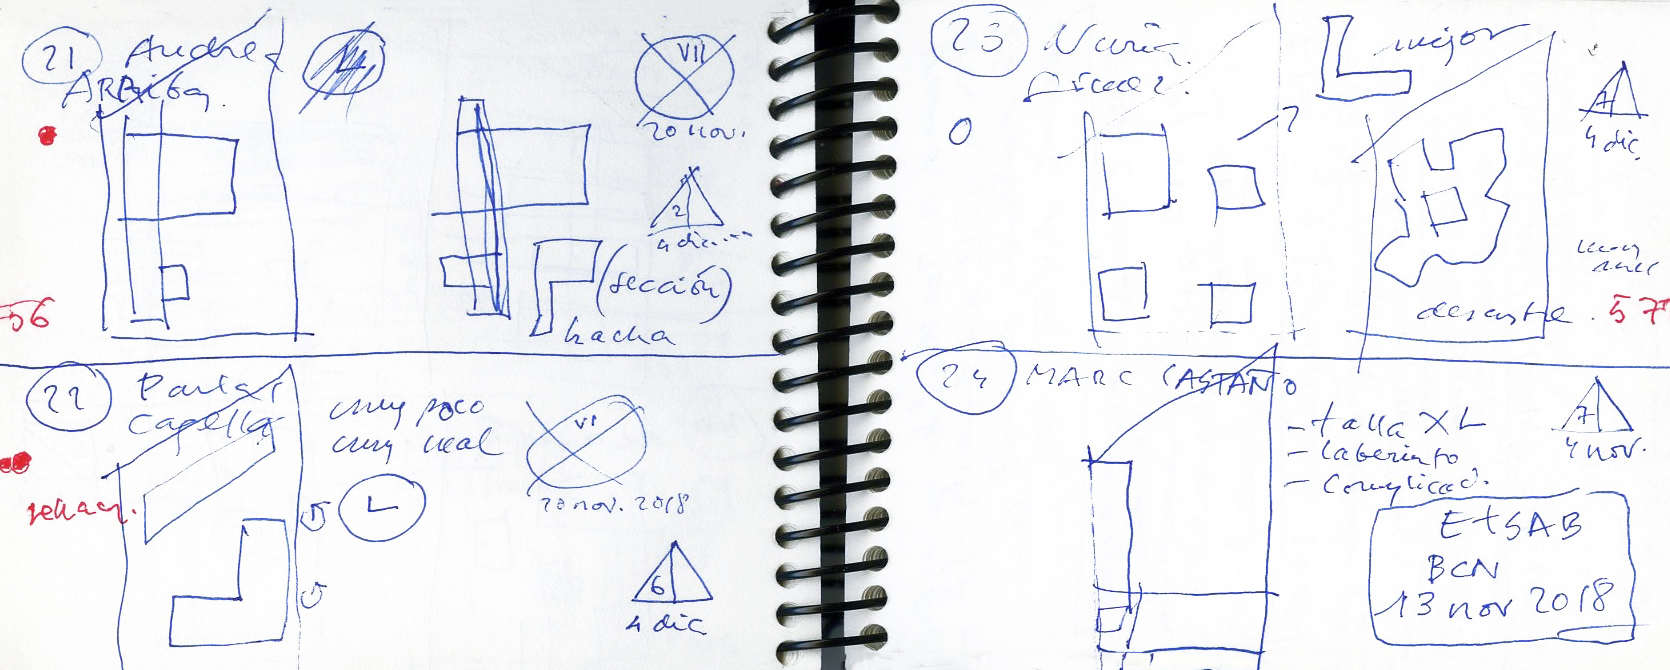 21 Andrea
ARRiba
VII
20 nov.
2
4 dic....
(sección)
hacha
56
22
Capella
muy poco
muy real
VI
20 nov. 2018
L
rehacer.
6
4 dic
23 Nuria
mejor
?
7
4 dic.
0
desastre. 57
24 MARC CASTAÑO
- talla XL
- Laberinto
- Complicad.
7
4 nov.
ETSAB
BCN
13 nov 2018